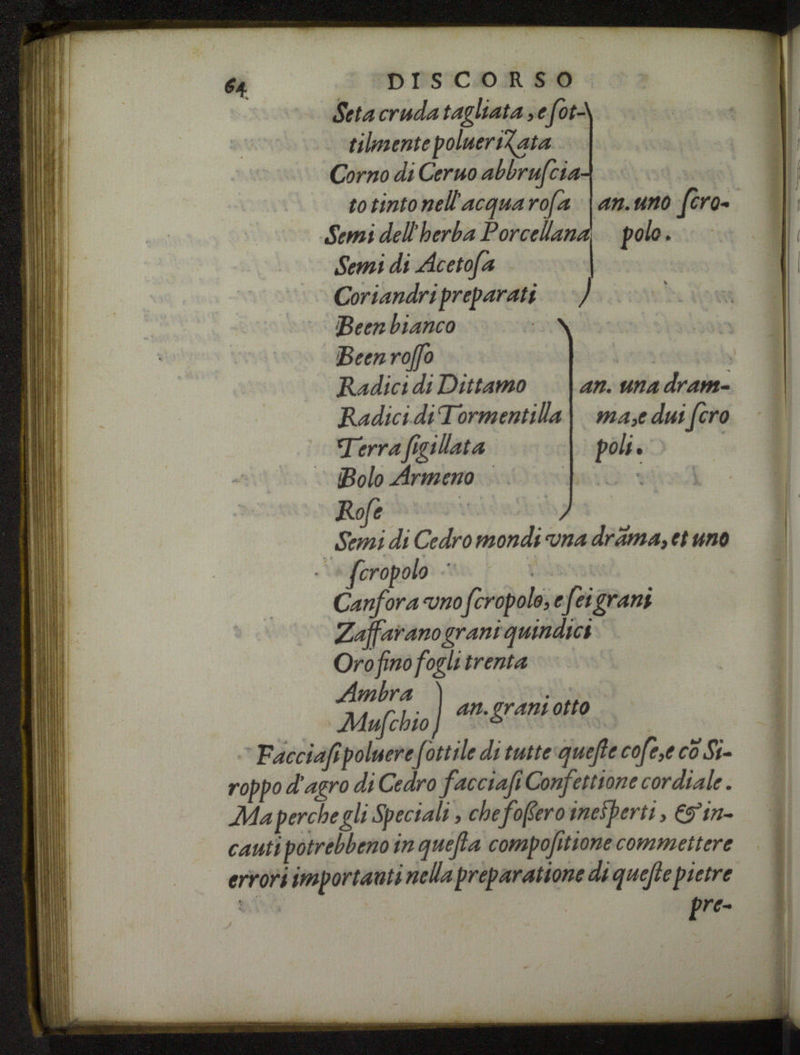 64
DISCORSO
Seta cruda tagliata, e ſot-
tilmente polueriʒata
Corno di Ceruo abbruſcia-
to tinto nell'acqua roſa an. uno ſcro-
Semi dell'herba Porcellana polo.
Semi di Acetoſa
Coriandri preparati
Been bianco
Been roſſo
Radici di Dittamo an. una dram-
Radici di Tormentilla ma, e dui ſcro
Terra ſigillata poli.
Bolo Armeno
Roſe
Semi di Cedro mondi vna drãma, et uno
ſcropolo
Canfora vno ſcropolo, e ſei grani
Zaffarano grani quindici
Oro fino fogli trenta
Ambra
Muſchio an. grani otto
Facciaſi poluere ſottile di tutte queſte coſe, e cõ Si-
roppo d'agro di Cedro facciaſi Confettione cordiale.
Ma perche gli Speciali, che foßero ineſperti, & in-
cauti potrebbeno in queſta compoſitione commettere
errori importanti nella preparatione di queſte pietre
pre-